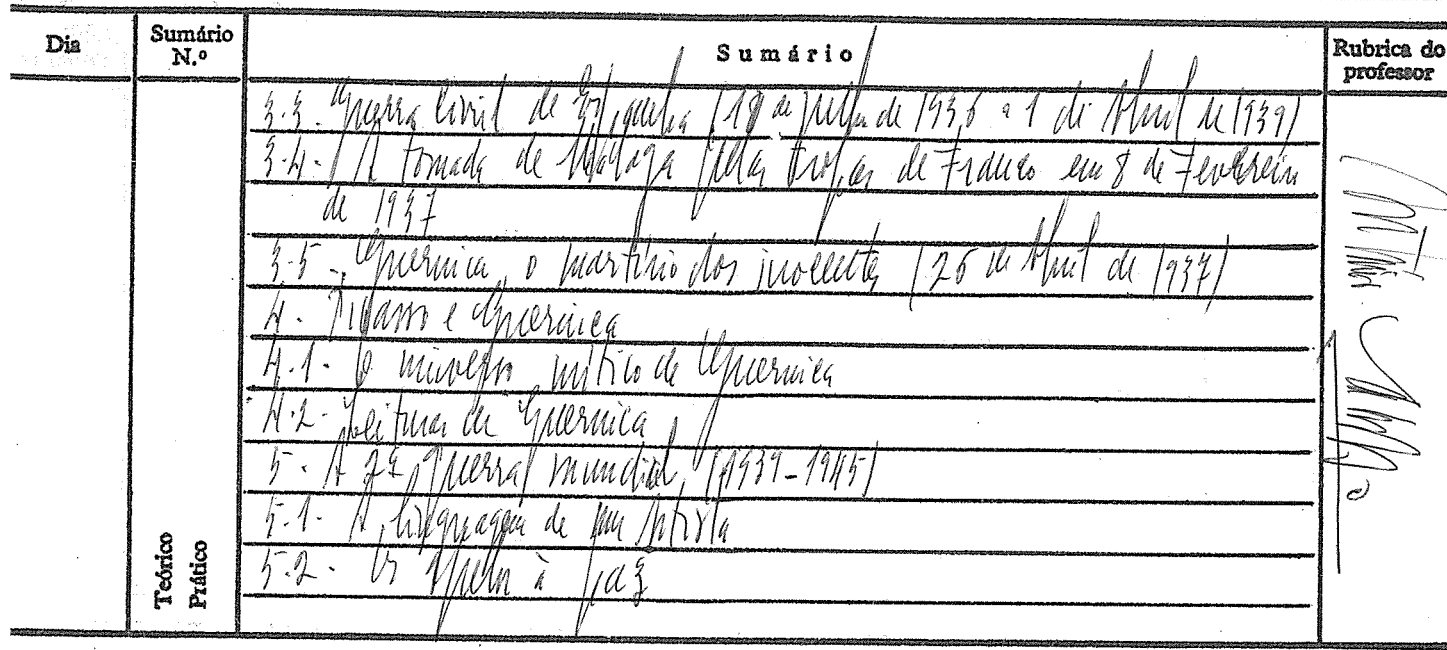 Dia
Sumário N.º
Sumário
Rubrica do professor
3.3. Guerra Civil de Espanha (18 de Julho de 1936 a 1 de Abril de 1939)
3.4. A tomada de Málaga pelas tropas de Franco em 8 de Fevereiro
de 1937
3.5. Guernica, o martírio dos inocentes (26 de Abril de 1937)
4. Picasso e Guernica
4.1. O universo mítico de Guernica
4.2. Leitura de Guernica
5. A 2ª Guerra Mundial (1939-1945)
5.1. A linguagem de um Artista
5.2. Os Apelo à Paz
Teórico
Prático